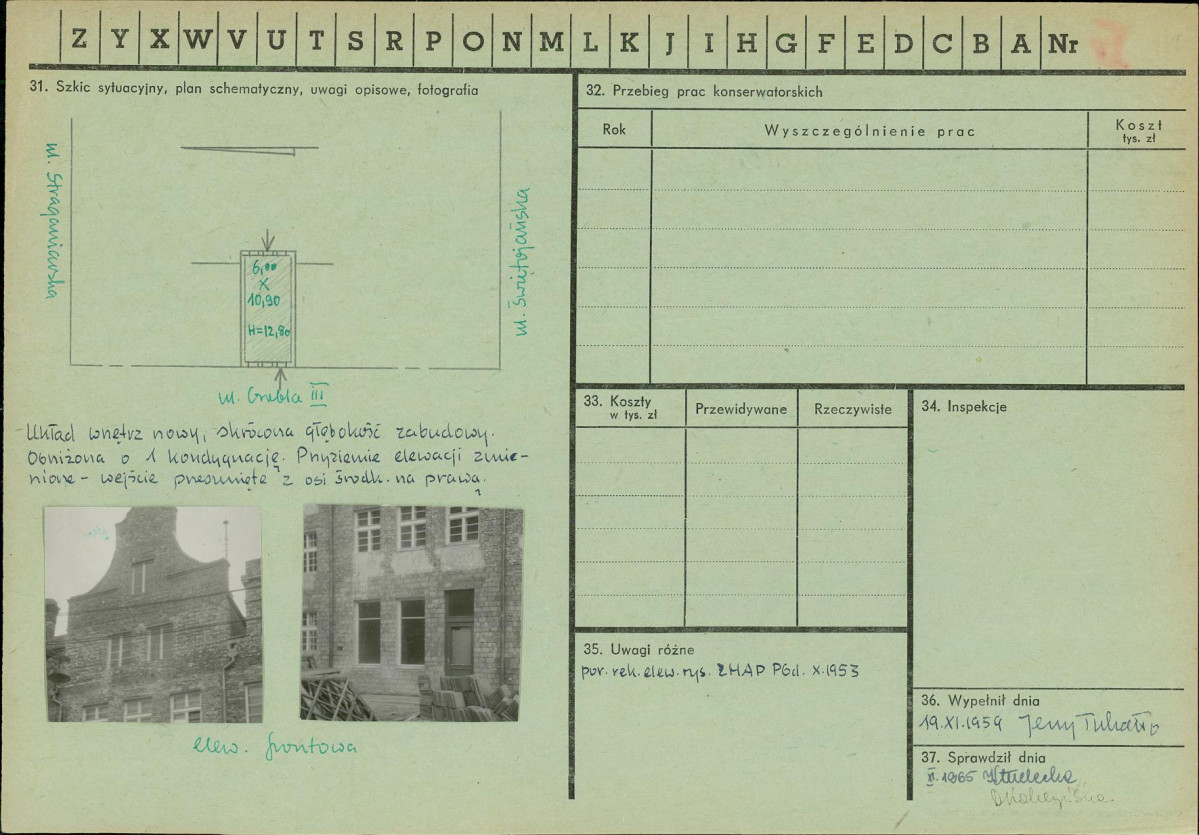 Z Y X W V U T S R P O N M L K J I H G F E D C B A Nr
31. Szkic sytuacyjny, plan schematyczny, uwagi opisowe, fotografia
ul. Straganiarska
ul. Świętojańska
6,00
X
10,90
H=12,80
ul. Grobla III
Układ wnętrz nowy, skrócona głębokość zabudowy.
Obniżona o 1 kondygnację. Przyziemie elewacji zmie-
nione - wejście przesunięte z osi środk. na prawą.
elew. frontowa
32. Przebieg prac konserwatorskich
Rok Wyszczególnienie prac Koszt
tys. zł
33. Koszty
w tys. zł
Przewidywane Rzeczywiste
34. Inspekcje
35. Uwagi różne
por. rek. elew. rys. ZHAP PGd. X.1953
36. Wypełnił dnia
19.XI.1959 Jerzy
37. Sprawdził dnia
1965